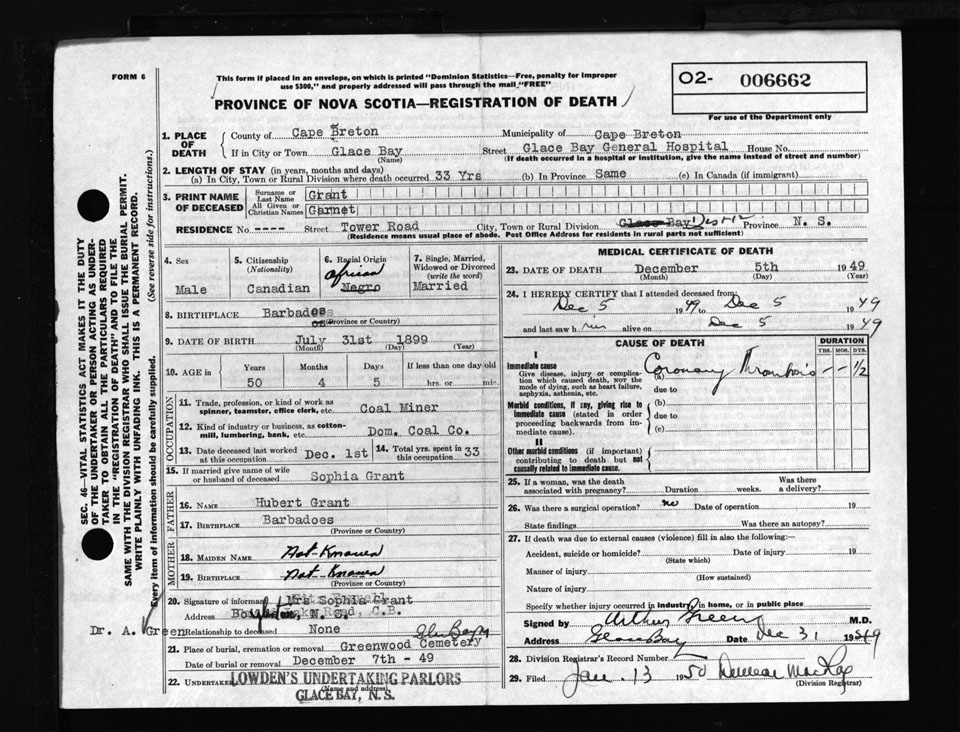 FORM 6
This form if placed in an envelope, on which is printed "Dominion Statistics—Free, penalty for improper
use $300," and properly addressed will pass through the mail "FREE"
PROVINCE OF NOVA SCOTIA—REGISTRATION OF DEATH
O2- 006662
For use of the Department only
SEC. 46—VITAL STATISTICS ACT MAKES IT THE DUTY
OF THE UNDERTAKER OR PERSON ACTING AS UNDER-
TAKER TO OBTAIN ALL THE PARTICULARS REQUIRED
IN THE "REGISTRATION OF DEATH" AND TO FILE THE
SAME WITH THE DIVISION REGISTRAR WHO SHALL ISSUE THE BURIAL PERMIT.
WRITE PLAINLY WITH UNFADING INK. THIS IS A PERMANENT RECORD.
Every item of information should be carefully supplied. (See reverse side for instructions.)
1. PLACE OF DEATH
County of Cape Breton Municipality of Cape Breton
If in City or Town Glace Bay Street Glace Bay General Hospital House No.
(Name) (If death occurred in a hospital or institution, give the name instead of street and number)
2. LENGTH OF STAY (in years, months and days)
(a) In City, Town or Rural Division where death occurred 33 Yrs (b) In Province Same (c) In Canada (if immigrant)
3. PRINT NAME OF DECEASED
Surname or Last Name Grant
All Given or Christian Names Garnet
RESIDENCE No. ---- Street Tower Road City, Town or Rural Division Glace Bay Dist 12 Province N. S.
(Residence means usual place of abode. Post Office Address for residents in rural parts not sufficient)
4. Sex Male
5. Citizenship (Nationality) Canadian
6. Racial Origin African Negro
7. Single, Married, Widowed or Divorced (write the word) Married
8. BIRTHPLACE Barbados
(Province or Country)
9. DATE OF BIRTH July 31st 1899
(Month) (Day) (Year)
10. AGE in Years 50 Months 4 Days 5 If less than one day old hrs. or min.
OCCUPATION
11. Trade, profession, or kind of work as
spinner, teamster, office clerk, etc. Coal Miner
12. Kind of industry or business, as cotton-
mill, lumbering, bank, etc. Dom. Coal Co.
13. Date deceased last worked at this occupation Dec. 1st
14. Total yrs. spent in this occupation 33
15. If married give name of wife
or husband of deceased Sophia Grant
FATHER
16. Name Hubert Grant
17. Birthplace Barbadoes
(Province or Country)
MOTHER
18. MAIDEN NAME Not Known
19. BIRTHPLACE Not Known
(Province or Country)
20. Signature of informant Mrs Sophia Grant
Address Road, C.B.
Dr. A. Green
Relationship to deceased None
21. Place of burial, cremation or removal Greenwood Cemetery Glace Bay
Date of burial or removal December 7th - 49
22. UNDERTAKER LOWDEN'S UNDERTAKING PARLORS
(Name and address)
GLACE BAY, N. S.
MEDICAL CERTIFICATE OF DEATH
23. DATE OF DEATH December 5th 1949
(Month) (Day) (Year)
24. I HEREBY CERTIFY that I attended deceased from:
Dec 5 1949 to Dec 5 1949
and last saw him alive on Dec 5 1949
CAUSE OF DEATH
DURATION
YRS. MOR. DYS.
I
Immediate cause
Give disease, injury or complica-
tion which caused death, NOT the
mode of dying, such as heart failure,
asphyxia, asthenia, etc.
(a) Coronary Thrombosis - - 1/2
due to
Morbid conditions, if any, giving rise to
immediate cause (stated in order
proceeding backwards from im-
mediate cause).
(b)
due to
(c)
II
Other morbid conditions (if important)
contributing to death but not
causally related to immediate cause.
25. If a woman, was the death
associated with pregnancy? Duration weeks. Was there a delivery?
26. Was there a surgical operation? no Date of operation 19
State findings Was there an autopsy?
27. If death was due to external causes (violence) fill in also the following:—
Accident, suicide or homicide? Date of injury 19
(State which)
Manner of injury
(How sustained)
Nature of injury
Specify whether injury occurred in industry, in home, or in public place
Signed by Arthur Green M.D.
Address Glace Bay Date Dec 31 1949
28. Division Registrar's Record Number
29. Filed Jan. 13 1950 Duncan MacKay
(Division Registrar)